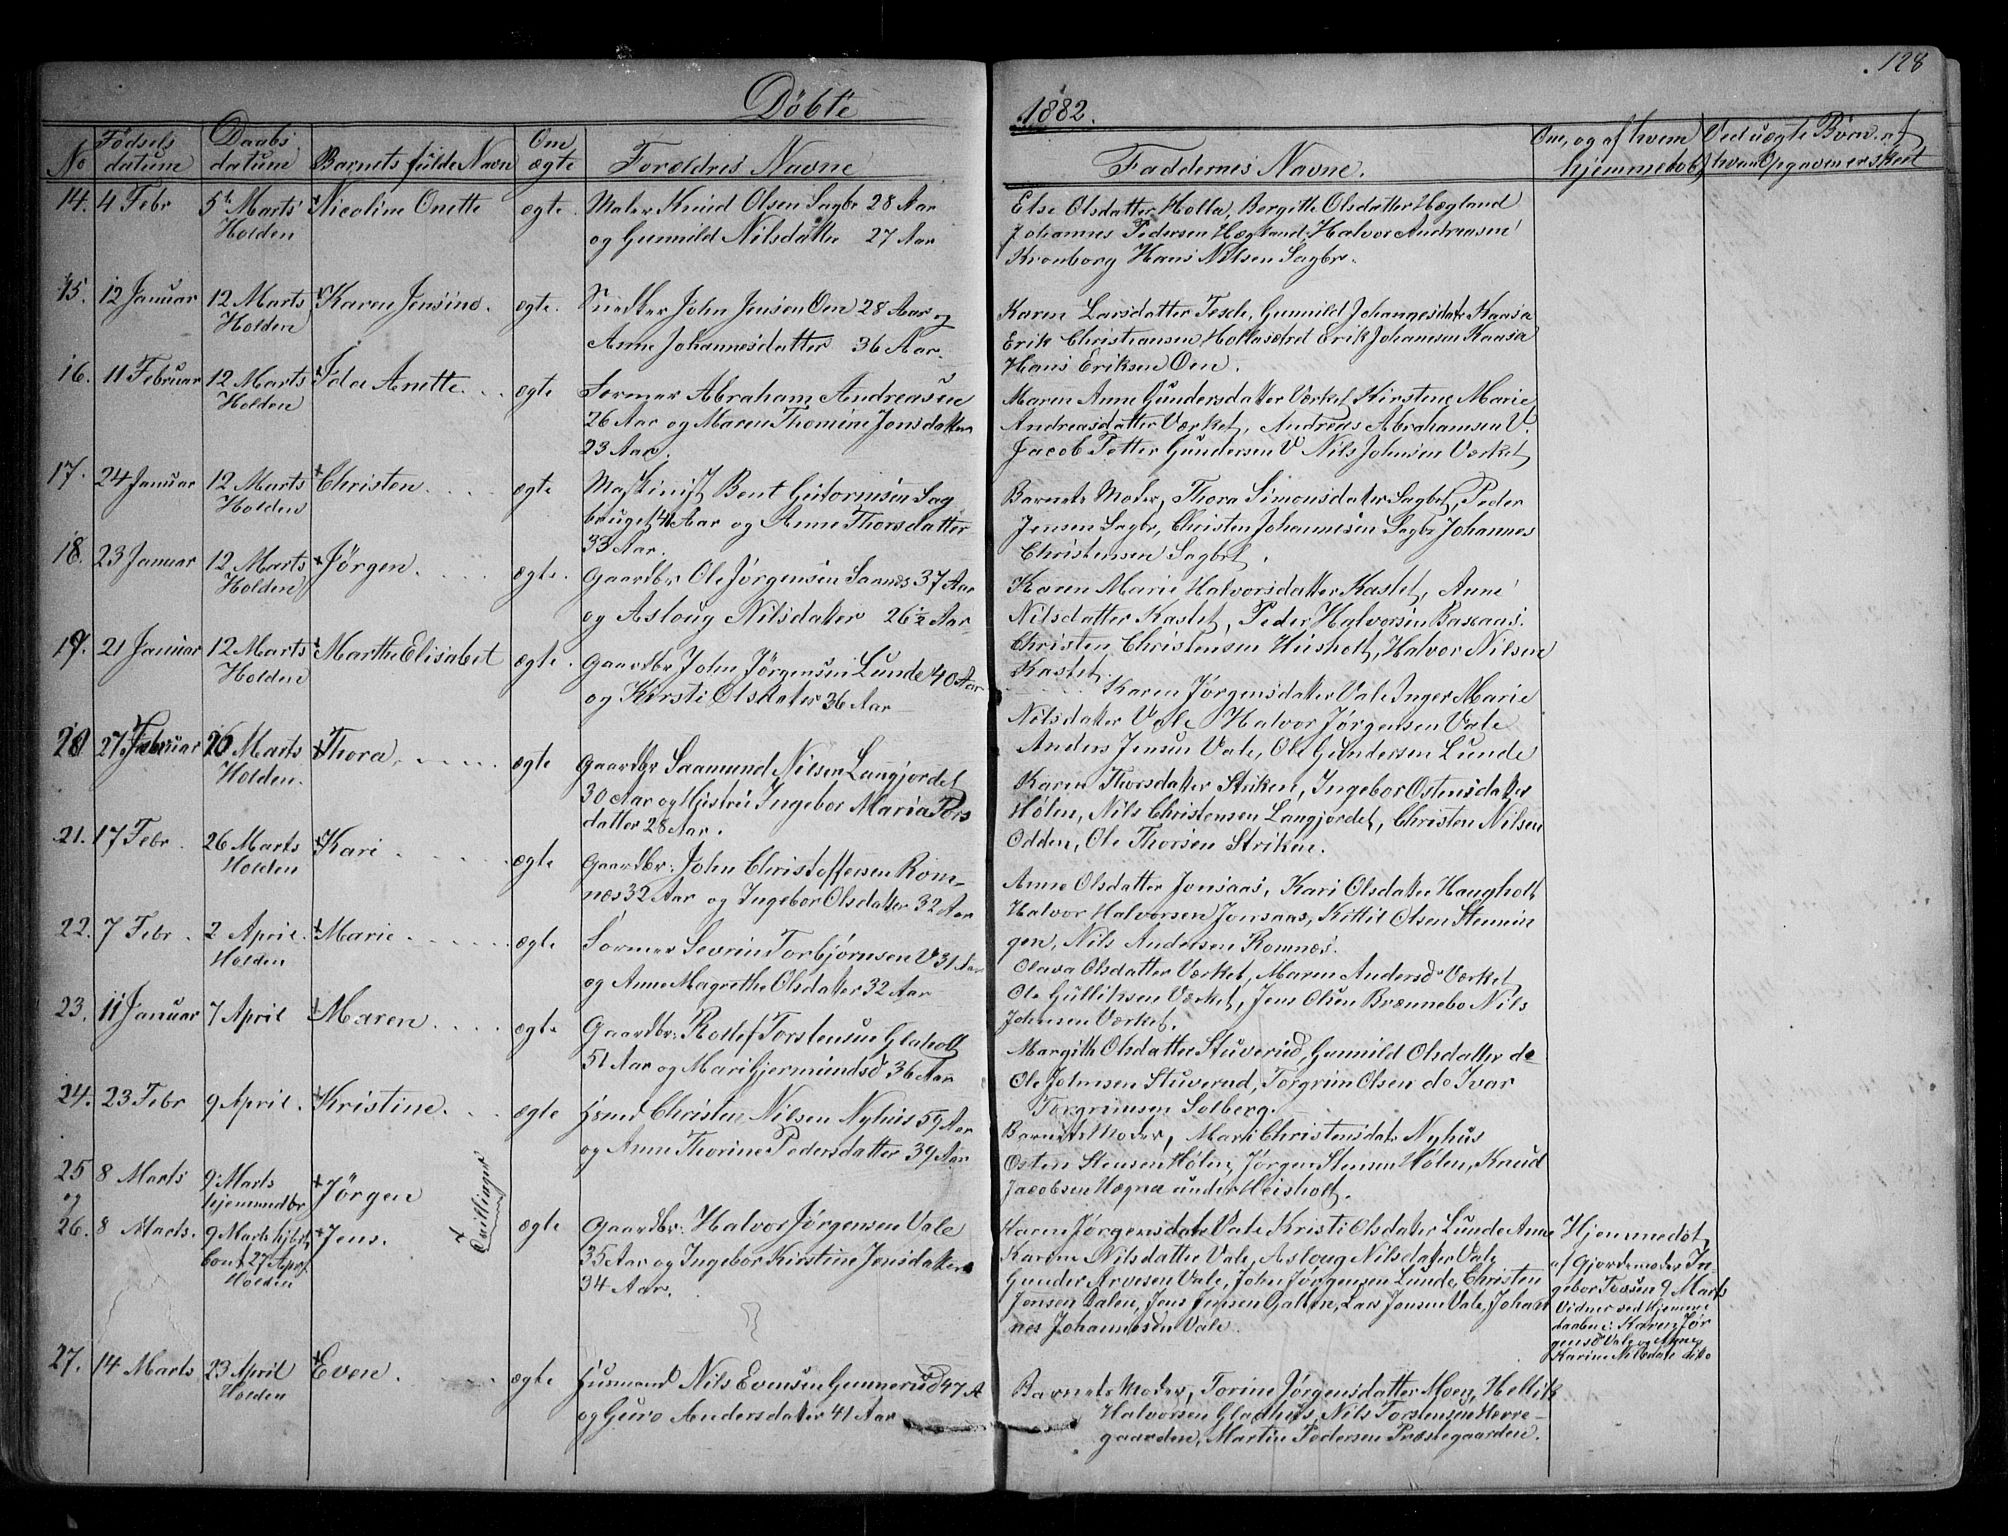 128
Døbte
1882.
No
Fødsels datum
Daabs datum
Barnets fulde Navn
Om ægte
Forældres Navne
Faddernes Navne.
Om, og af hvem hjemmedøbt
Ved uægte Børn, af hvem Opgaven er skeet
14. 4 Febr
5te Marts Holden
Nicoline Onette
ægte.
Maler Knud Olsen Sagbr 28 Aar
og Gunnild Nilsdatter 27 Aar
Else Olsdatter Holla, Bergitte Olsdatter Hægland
Johannes Pedersen Hægland, Halvor Andreasen
Kronborg Hans Nilsen Sagbr.
15. 12 Januar
12 Marts Holden
Karen Jensine.
ægte.
Snedker John Jensen Oen 28 Aar og
Anne Johannesdatter 36 Aar.
Karen Larsdatter Tesch, Gunnild Johannesdatr Kaasa
Erik Christiansen Hollasætret Erik Johannesen Kaasa
Hans Eriksen Oen.
16. 11 Februar
12 Marts Holden
Ida Anette.
ægte
Former Abraham Andreasen
26 Aar og Maren Thomine Jonsdatter
23 Aar.
Maren Anne Gundersdatter Værket, Kirstine Marie
Andreasdatter Værket, Andreas Abrahamsen V.
Jacob Petter Gundersen V Nils Johnsen Værket
17. 24 Januar
12 Marts Holden
Christen.
ægte
Maskinist Bent Gutormsen Sag
bruget, 41 Aar og Anne Thorsdatter
33 Aar.
Barnets Moder, Thora Simonsdatter Sagbr, Peder
Jensen Sagbr, Christen Johannesen Sagbr Johannes
Christensen Sagbr.
18. 23 Januar
12 Marts Holden
Jörgen.
ægte.
Gaardbr. Ole Jörgensen Saanes 37 Aar
og Asloug Nilsdatter 26½ Aar
Karen Marie Halvorsdatter Kastet, Anne
Nilsdatter Kastet, Peder Halvorsen Baxaas.
Christen Christensen Hiisholt, Halvor Nilsen
Kastet.
19. 21 Januar
12 Marts Holden
Marthe Elisabet
ægte.
Gaardbr John Jörgensen Lunde 40 Aar
og Kirsti Olsdatter 36 Aar
Karen Jørgensdatter Vale Inger Marie
Nilsdatter Vale Halvor Jörgensen Vale
Anders Jensen Vale, Ole Gundersen Lunde
20 27 Februar
26 Marts Holden.
Thora.
ægte
Gaardbr Saamund Nilsen Langjordet
30 Aar og Hustru Ingebor Maria Tors
datter 28 Aar.
Karen Thorsdatter Striken, Ingebor Ostensdatter
Hølen, Nils Christensen Langjordet, Christen Nilsen
Odden, Ole Thorsen Striken.
21. 17 Febr.
26 Marts Holden
Kari
ægte
Gaardbr: John Christoffersen Rom-
næs 32 Aar og Ingebor Olsdatter 32 Aar
Anne Olsdatter Jonsaas, Kari Olsdatter Haugholt
Halvor Halvorsen Jonsaas, Kittil Olsen Stenin
gen, Nils Andersen Romnæs.
22. 7 Febr.
2 April. Holden
Marie
ægte
Former Sevrin Torbjørnsen V 31 Aar
og Anne Magrethe Olsdatter 32 Aar
Olava Olsdatter Værket, Maren Andersdr Værket
Ole Gulliksen Værket, Jens Olsen Brænnebo Nils
Johnsen Værket.
23. 11 Januar
7 April
Maren
ægte
Gaardbr: Rollef Torstensen Glaholt
51 Aar og Mari Gjermundsd 36 Aar
Margith Olsdatter Stuverud, Gunnild Olsdatter do
Ole Johnsen Stuverud, Torgrim Olsen do Ivar
Torgrimsen Solberg.
24. 23 Febr
9 April.
Kristine.
ægte
Hsmd Christen Nilsen Nyhus 59 Aar
og Anne Thorine Pedersdatter 39 Aar
Barnets Moder, Mari Christensdatr Nyhus
Osten Stensen Hølen, Jørgen Stensen Hølen, Knud
Jacobsen Hægna under Heisholt.
25 8 Marts
9 Marts hjemmedbr
Jörgen
og
26. 8 Marts.
9 Marts hjdbt
conf 27 April Holden
Jens.
Tvillinger
ægte
Gaardbr: Halvor Jörgensen Vale
35 Aar og Ingebor Kirstine Jensdatter
34 Aar.
Karen Jørgensdatr Vale Kristi Olsdatter Lunde Anne
Karine Nilsdatter Vale, Aslaug Nilsdatter Vale
Gunder Arvesen Vale, John Jörgensen Lunde, Christen
Jensen Dalen, Jens Jensen Gallen, Lars Jensen Vale, Johan
nes Johannesen Vale.
Hjemmedøbt
af Gjordemoder In
gebor 9 Marts
Vidner ved Hjemme
daaben: Karen Jør
gensd Vale og Anne
Karine Nilsdatr dito
27. 14 Marts
23 April Holden
Even.
ægte
Husmand Nils Evensen Gunnerud 47 A
og Guro Andersdatter 41 Aar
Barnets Moder, Torine Jørgensdatter Moen, Hellik
Halvorsen Gladhus, Nils Torstensen Herre-
gaarden, Martin Pedersen Præstegaarden.